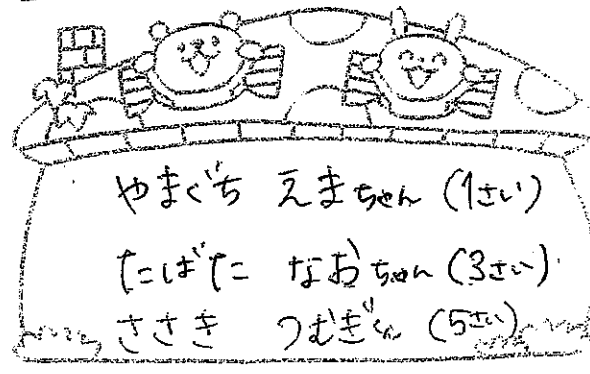 やまぐち えまちゃん (1さい)
たばた なおちゃん (3さい)
ささき つむぎくん (5さい)